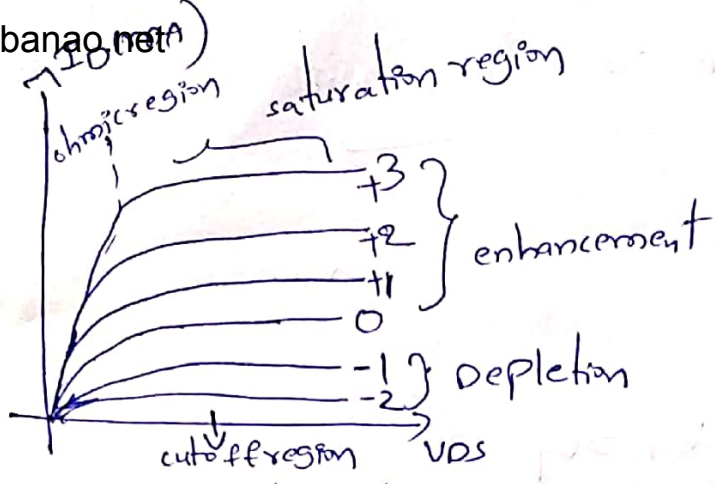 banao.net
ID (mA)
ohmic region
saturation region
+3
+2
+1
0
-1
-2
enhancement
Depletion
cutoff region
VDS